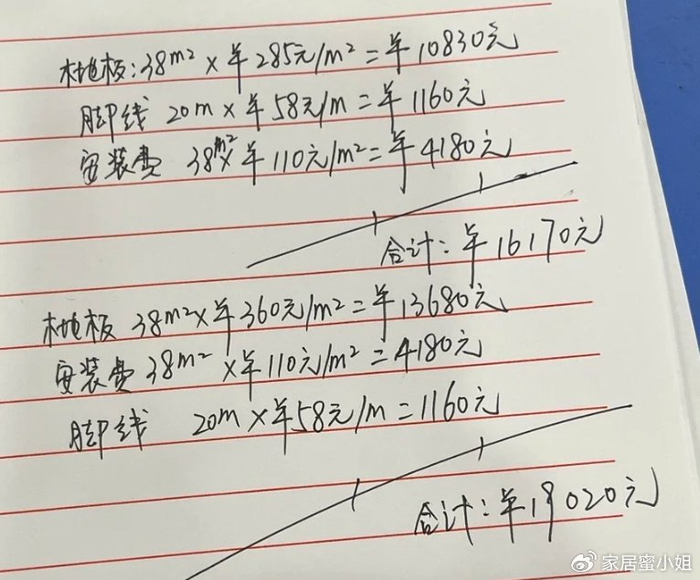 地板:38m² × ¥285元/m² = ¥10830元
脚线 20m × ¥58元/m = ¥1160元
安装费 38m² × ¥110元/m² = ¥4180元
合计: ¥16170元
地板 38m² × ¥360元/m² = ¥13680元
安装费 38m² × ¥110元/m² = 4180元
脚线 20m × ¥58元/m = 1160元
合计: ¥19020元
@家居蜜小姐